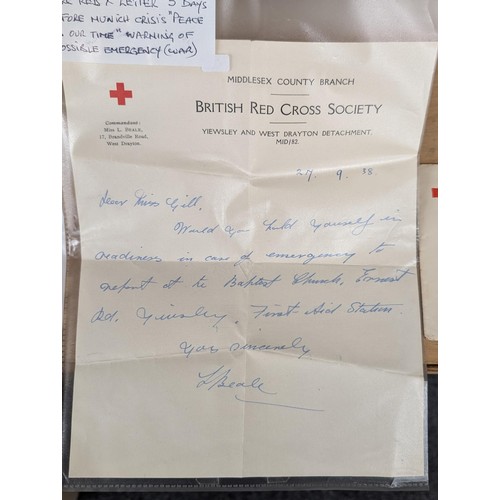 RED X LETTER 3 DAYS
FORE MUNICH CRISIS "PEACE
OUR TIME" WARNING OF
OSSIBLE EMERGENCY (WAR)
MIDDLESEX COUNTY BRANCH
BRITISH RED CROSS SOCIETY
YIEWSLEY AND WEST DRAYTON DETACHMENT,
MID/82.
Commandant:
Miss L. BEALE,
17, Brandville Road,
West Drayton.
27. 9. 38
Dear Miss Gill,
Would you hold yourself in
readiness in case of emergency to
report at the Baptist Church, Ernest
Rd. Yiewsley. First-Aid Station.
Yours sincerely
L Beale